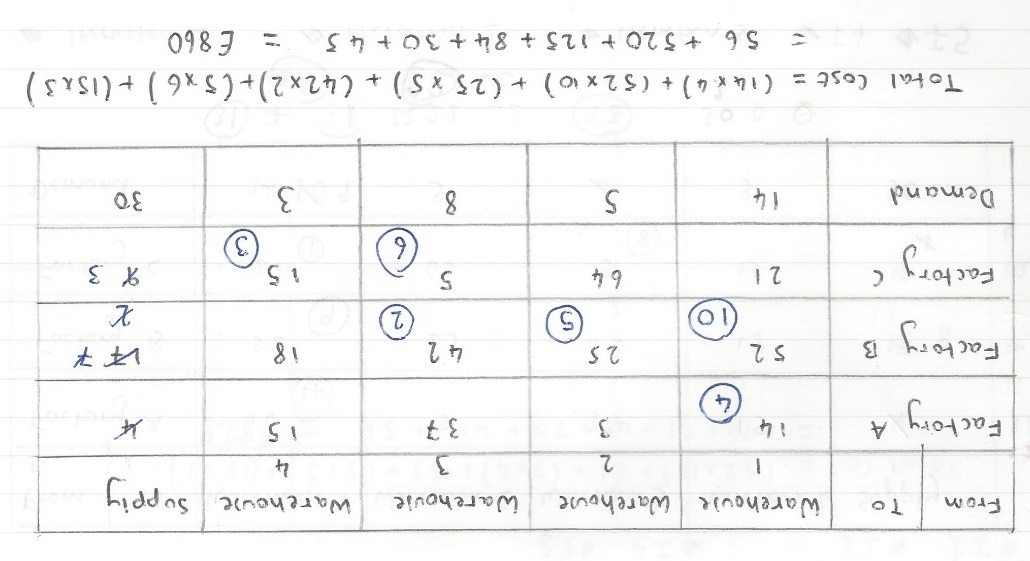 From To Warehouse 1 Warehouse 2 Warehouse 3 Warehouse 4 Supply
Factory A 14 3 37 15 4
4
Factory B 52 25 42 18 17 7
10 5 2 2
Factory C 21 64 5 15 9 3
6 3
Demand 14 5 8 3 30
Total Cost = (14x4)+(52x10)+(25x5)+(42x2)+(5x6)+(15x3)
= 56+520+125+84+30+45 = £860